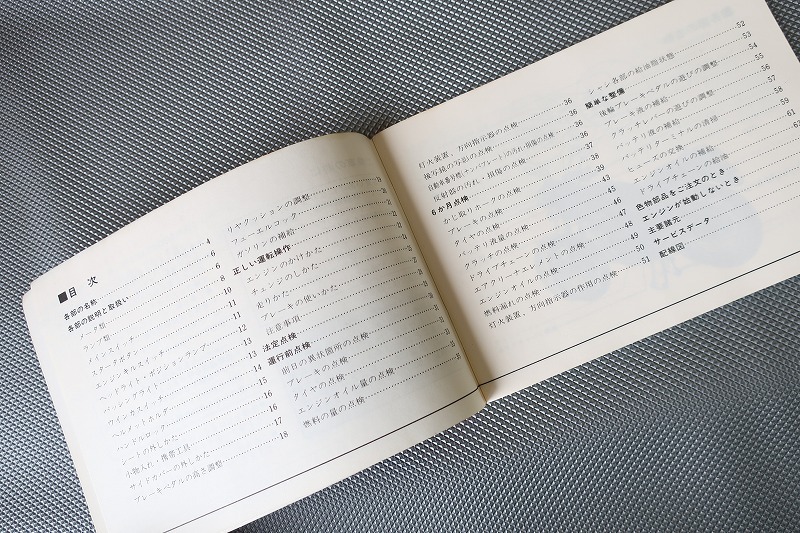 ■目 次
各部の名称 4
各部の説明と取扱い 6
メータ類 6
ランプ類 8
メインスイッチ 10
スタータボタン 10
エンジンキルスイッチ 11
ヘッドライト・ポジションランプ 11
パッシングライト 12
ウインカスイッチ 13
ヘルメットホルダ 13
ハンドルロック 14
シートの外しかた 15
小物入れ・携帯工具 16
サイドカバーの外しかた 16
ブレーキペダルの高さ調整 17
18
リヤクッションの調整 19
フューエルコック 20
ガソリンの補給
正しい運転操作
エンジンのかけかた
チェンジのしかた
走りかた
ブレーキの使いかた
注意事項
法定点検
運行前点検
前日の異状箇所の点検
ブレーキの点検
タイヤの点検
エンジンオイル量の点検
燃料の量の点検
灯火装置、方向指示器の点検 36
後写鏡の写影の点検 36
自動車番号標(ナンバプレート)の汚れ・損傷の点検 36
反射器の汚れ・損傷の点検 36
6か月点検 37
かじ取りホークの点検 38
ブレーキの点検 39
タイヤの点検 43
バッテリ液量の点検 45
クラッチの点検 46
ドライブチェーンの点検 47
エアクリーナエレメントの点検 48
エンジンオイルの点検 49
燃料漏れの点検 50
灯火装置、方向指示器の作用の点検 51
シャシ各部の給油脂状態 52
簡単な整備 53
後輪ブレーキペダルの遊びの調整 54
ブレーキ液の補給 55
クラッチレバーの遊びの調整 56
バッテリ液の補給 57
バッテリターミナルの清掃 58
ヒューズの交換 59
エンジンオイルの補給 61
ドライブチェーンの給油
色物部品をご注文のとき
エンジンが始動しないとき
主要諸元
サービスデータ
配線図